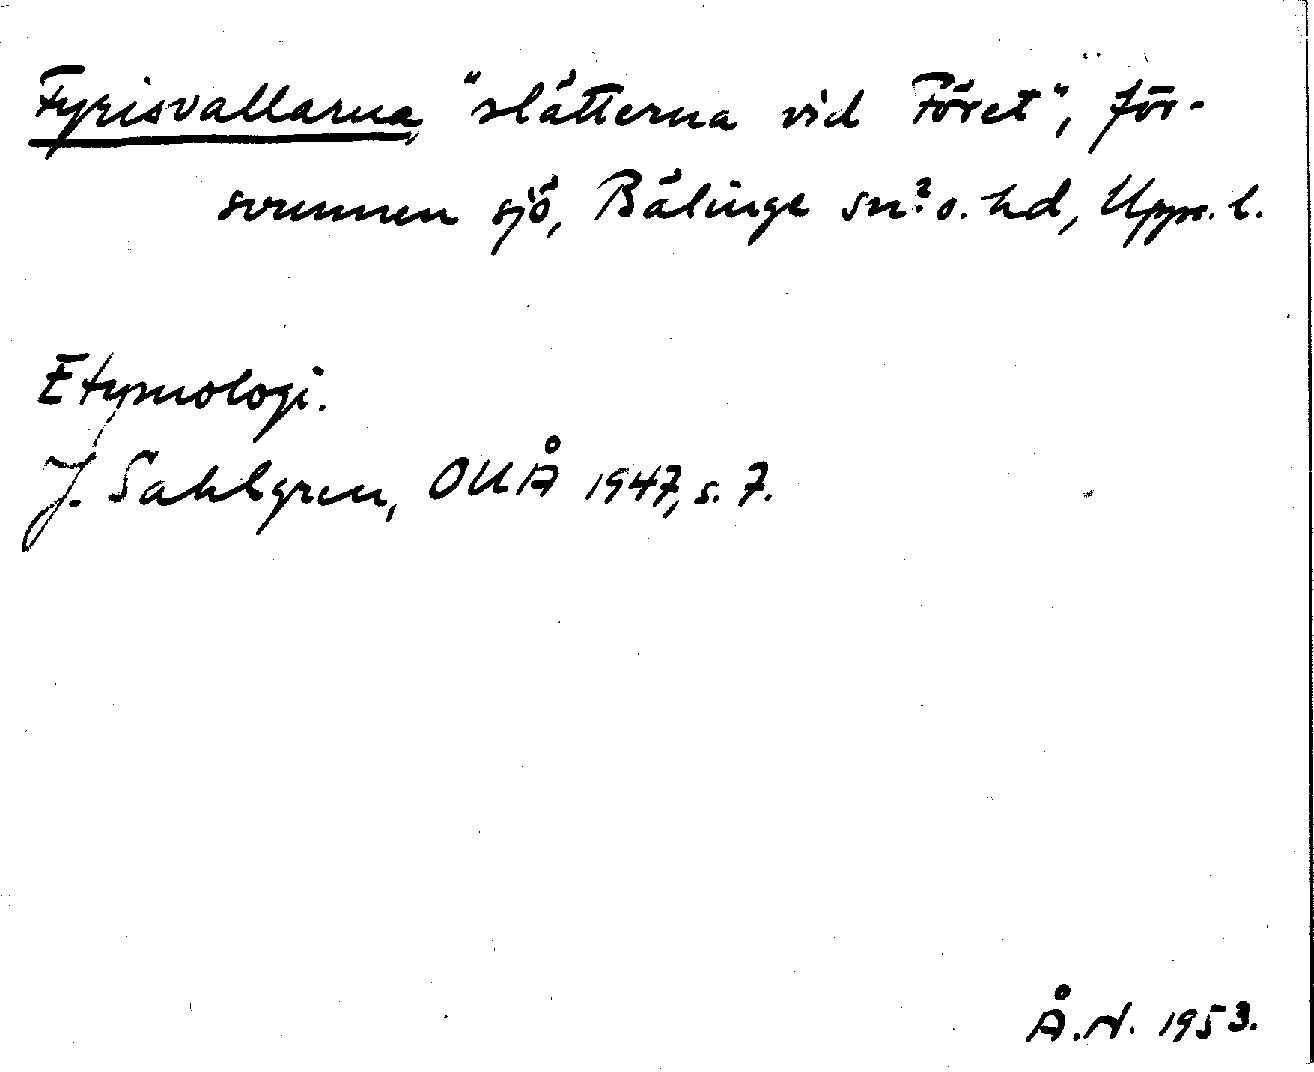 Fyrisvallarna, "slätterna vid Föret", för-
svunnen sjö, Bälinge sn? o. hd, Upps. l.
Etymologi.
J. Sahlgren, OUÅ 1947, s. 7.
Å.N. 1953.